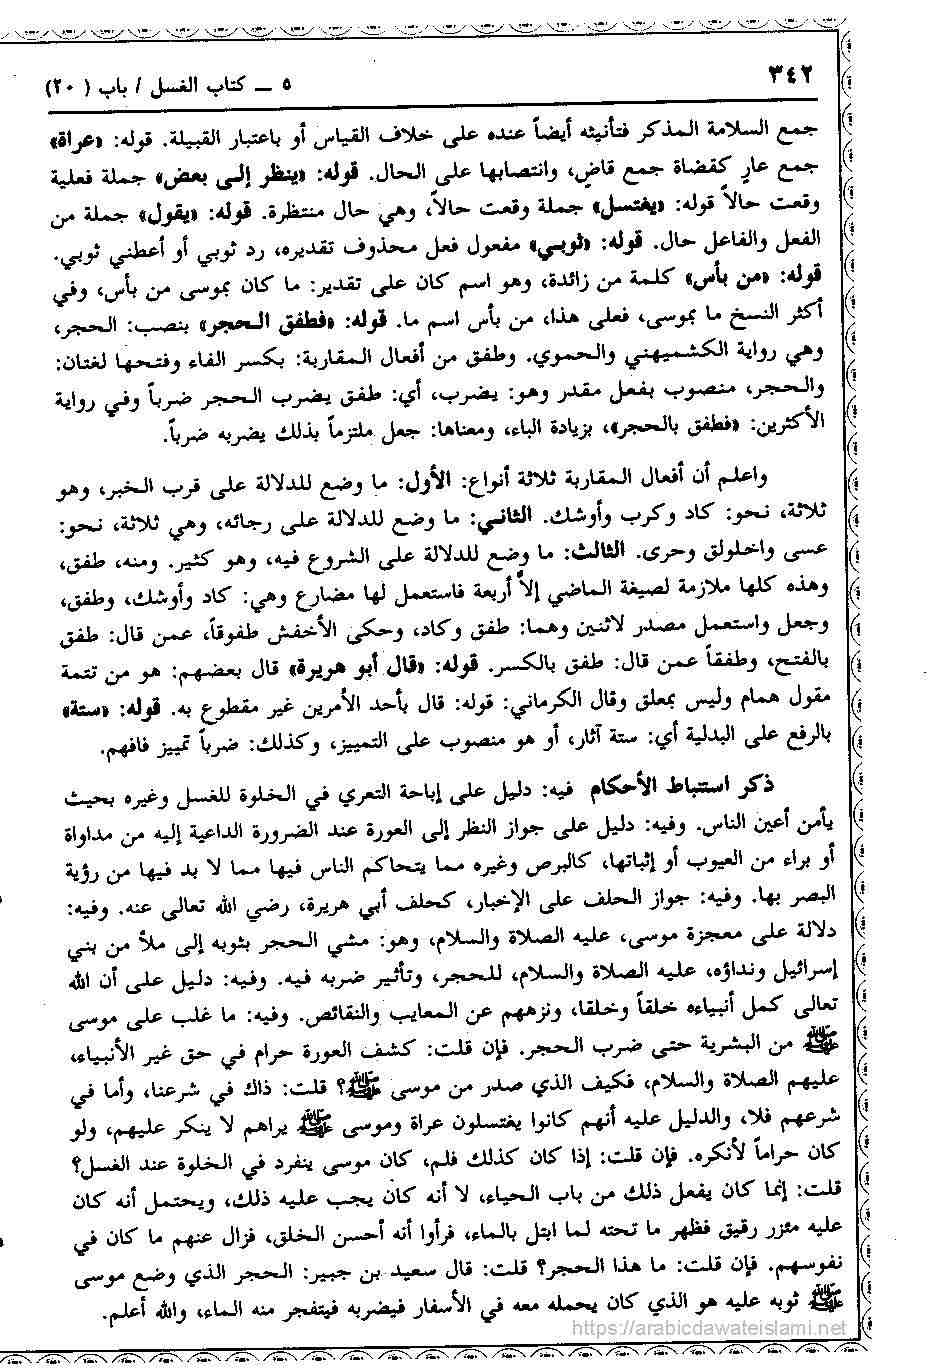 ٣٤٢
٥ ـ كتاب الغسل / باب (٢٠)
جمع السلامة المذكر فتأنيثه أيضاً عنده على خلاف القياس أو باعتبار القبيلة. قوله: «عراة»
جمع عارٍ كقضاة جمع قاضٍ، وانتصابها على الحال. قوله: «ينظر إلى بعض» جملة فعلية
وقعت حالاً قوله: «يغتسل» جملة وقعت حالاً، وهي حال منتظرة. قوله: «يقول» جملة من
الفعل والفاعل حال. قوله: «ثوبي» مفعول فعل محذوف تقديره، رد ثوبي أو أعطني ثوبي.
قوله: «من بأس» كلمة من زائدة، وهو اسم كان على تقدير: ما كان بموسى من بأس، وفي
أكثر النسخ ما بموسى، فعلى هذا، من بأس اسم ما. قوله: «فطفق الحجر» بنصب: الحجر،
وهي رواية الكشميهني والحموي. وطفق من أفعال المقاربة: بكسر الفاء وفتحها لغتان:
والحجر، منصوب بفعل مقدر وهو: يضرب، أي: طفق يضرب الحجر ضرباً وفي رواية
الأكثرين: «فطفق بالحجر»، بزيادة الباء، ومعناها: جعل ملتزماً بذلك يضربه ضرباً.
واعلم أن أفعال المقاربة ثلاثة أنواع: الأول: ما وضع للدلالة على قرب الخبر، وهو
ثلاثة، نحو: كاد وكرب وأوشك. الثاني: ما وضع للدلالة على رجائه، وهي ثلاثة، نحو:
عسى واخلولق وحرى. الثالث: ما وضع للدلالة على الشروع فيه، وهو كثير. ومنه، طفق،
وهذه كلها ملازمة لصيغة الماضي إلاَّ أربعة فاستعمل لها مضارع وهي: كاد وأوشك، وطفق،
وجعل واستعمل مصدر لاثنين وهما: طفق وكاد، وحكى الأخفش طفوقاً، عمن قال: طفق
بالفتح، وطفقاً عمن قال: طفق بالكسر. قوله: «قال أبو هريرة» قال بعضهم: هو من تتمة
مقول همام وليس بمعلق وقال الكرماني: قوله: قال بأحد الأمرين غير مقطوع به. قوله: «ستة»
بالرفع على البدلية أي: ستة آثار، أو هو منصوب على التمييز، وكذلك: ضرباً تمييز فافهم.
ذكر استنباط الأحكام فيه: دليل على إباحة التعري في الخلوة للغسل وغيره بحيث
يأمن أعين الناس. وفيه: دليل على جواز النظر إلى العورة عند الضرورة الداعية إليه من مداواة
أو براء من العيوب أو إثباتها، كالبرص وغيره مما يتحاكم الناس فيها مما لا بد فيها من رؤية
البصر بها. وفيه: جواز الحلف على الإخبار، كحلف أبي هريرة، رضي الله تعالى عنه. وفيه:
دلالة على معجزة موسى، عليه الصلاة والسلام، وهو: مشي الحجر بثوبه إلى ملأ من بني
إسرائيل ونداؤه، عليه الصلاة والسلام، للحجر، وتأثير ضربه فيه. وفيه: دليل على أن الله
تعالى كمل أنبياءه خلقاً وخلقا، ونزههم عن المعايب والنقائص. وفيه: ما غلب على موسى
ﷺ من البشرية حتى ضرب الحجر. فإن قلت: كشف العورة حرام في حق غير الأنبياء،
عليهم الصلاة والسلام، فكيف الذي صدر من موسى ﷺ؟ قلت: ذاك في شرعنا، وأما في
شرعهم فلا، والدليل عليه أنهم كانوا يغتسلون عراة وموسى ﷺ يراهم لا ينكر عليهم، ولو
كان حراماً لأنكره. فإن قلت: إذا كان كذلك فلم، كان موسى ينفرد في الخلوة عند الغسل؟
قلت: إنما كان يفعل ذلك من باب الحياء، لا أنه كان يجب عليه ذلك، ويحتمل أنه كان
عليه مئزر رقيق فظهر ما تحته لما ابتل بالماء، فرأوا أنه أحسن الخلق، فزال عنهم ما كان في
نفوسهم. فإن قلت: ما هذا الحجر؟ قلت: قال سعيد بن جبير: الحجر الذي وضع موسى
ﷺ ثوبه عليه هو الذي كان يحمله معه في الأسفار فيضربه فيتفجر منه الماء، والله أعلم.
https://arabicdawateislami.net